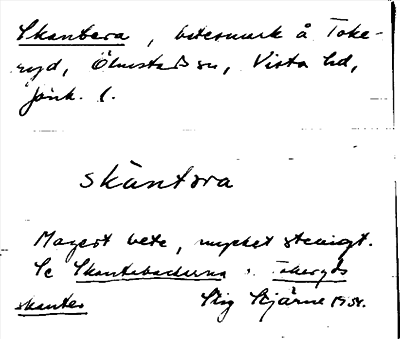 Skantera, betesmark å Toke-
ryd, Ölmstad sn, Vista hd,
Jönk. l.
skàntora
Magert bete, mycket stenigt.
Se Skantebackarna o. Tokeryds
skanter Stig Stjärne 1951.